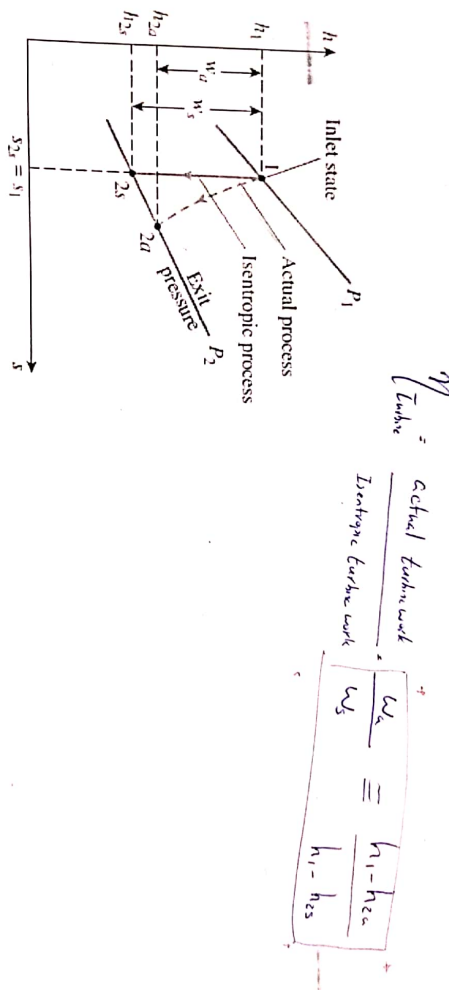 h
h₁
h₂ₐ
h₂ₛ
wₐ
wₛ
Inlet state
1
P₁
Actual process
Isentropic process
2a
2s
Exit
pressure
P₂
s₂ₛ = s₁
s
η Turbine = actual turbine work = wₐ ≡ h₁ - h₂ₐ
Isentropic turbine work wₛ h₁ - h₂ₛ